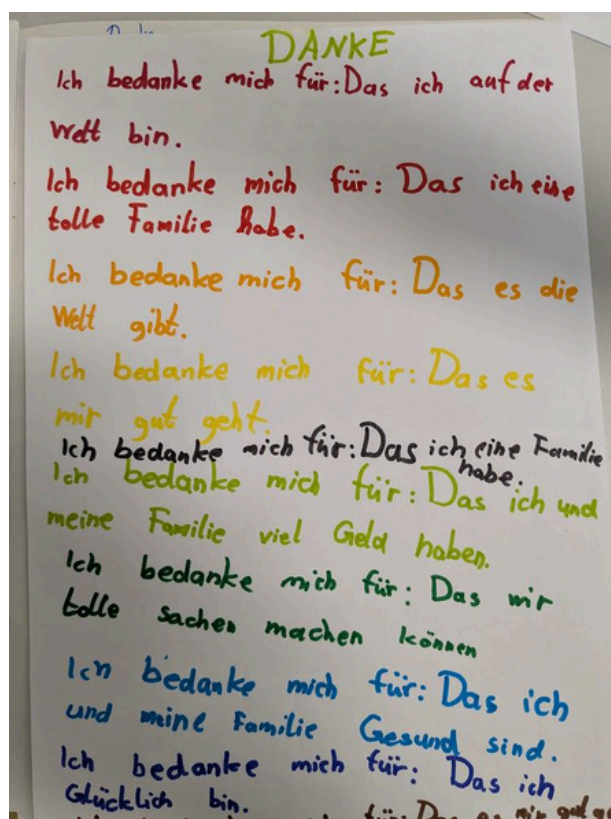 DANKE
Ich bedanke mich für: Das ich auf der
Welt bin.
Ich bedanke mich für: Das ich eine
tolle Familie habe.
Ich bedanke mich für: Das es die
Welt gibt.
Ich bedanke mich für: Das es
mir gut geht.
Ich bedanke mich für: Das ich eine Familie
habe.
Ich bedanke mich für: Das ich und
meine Familie viel Geld haben.
Ich bedanke mich für: Das wir
tolle sachen machen können
Ich bedanke mich für: Das ich
und meine Familie Gesund sind.
Ich bedanke mich für: Das ich
Glücklich bin.
für: Das es mir gut